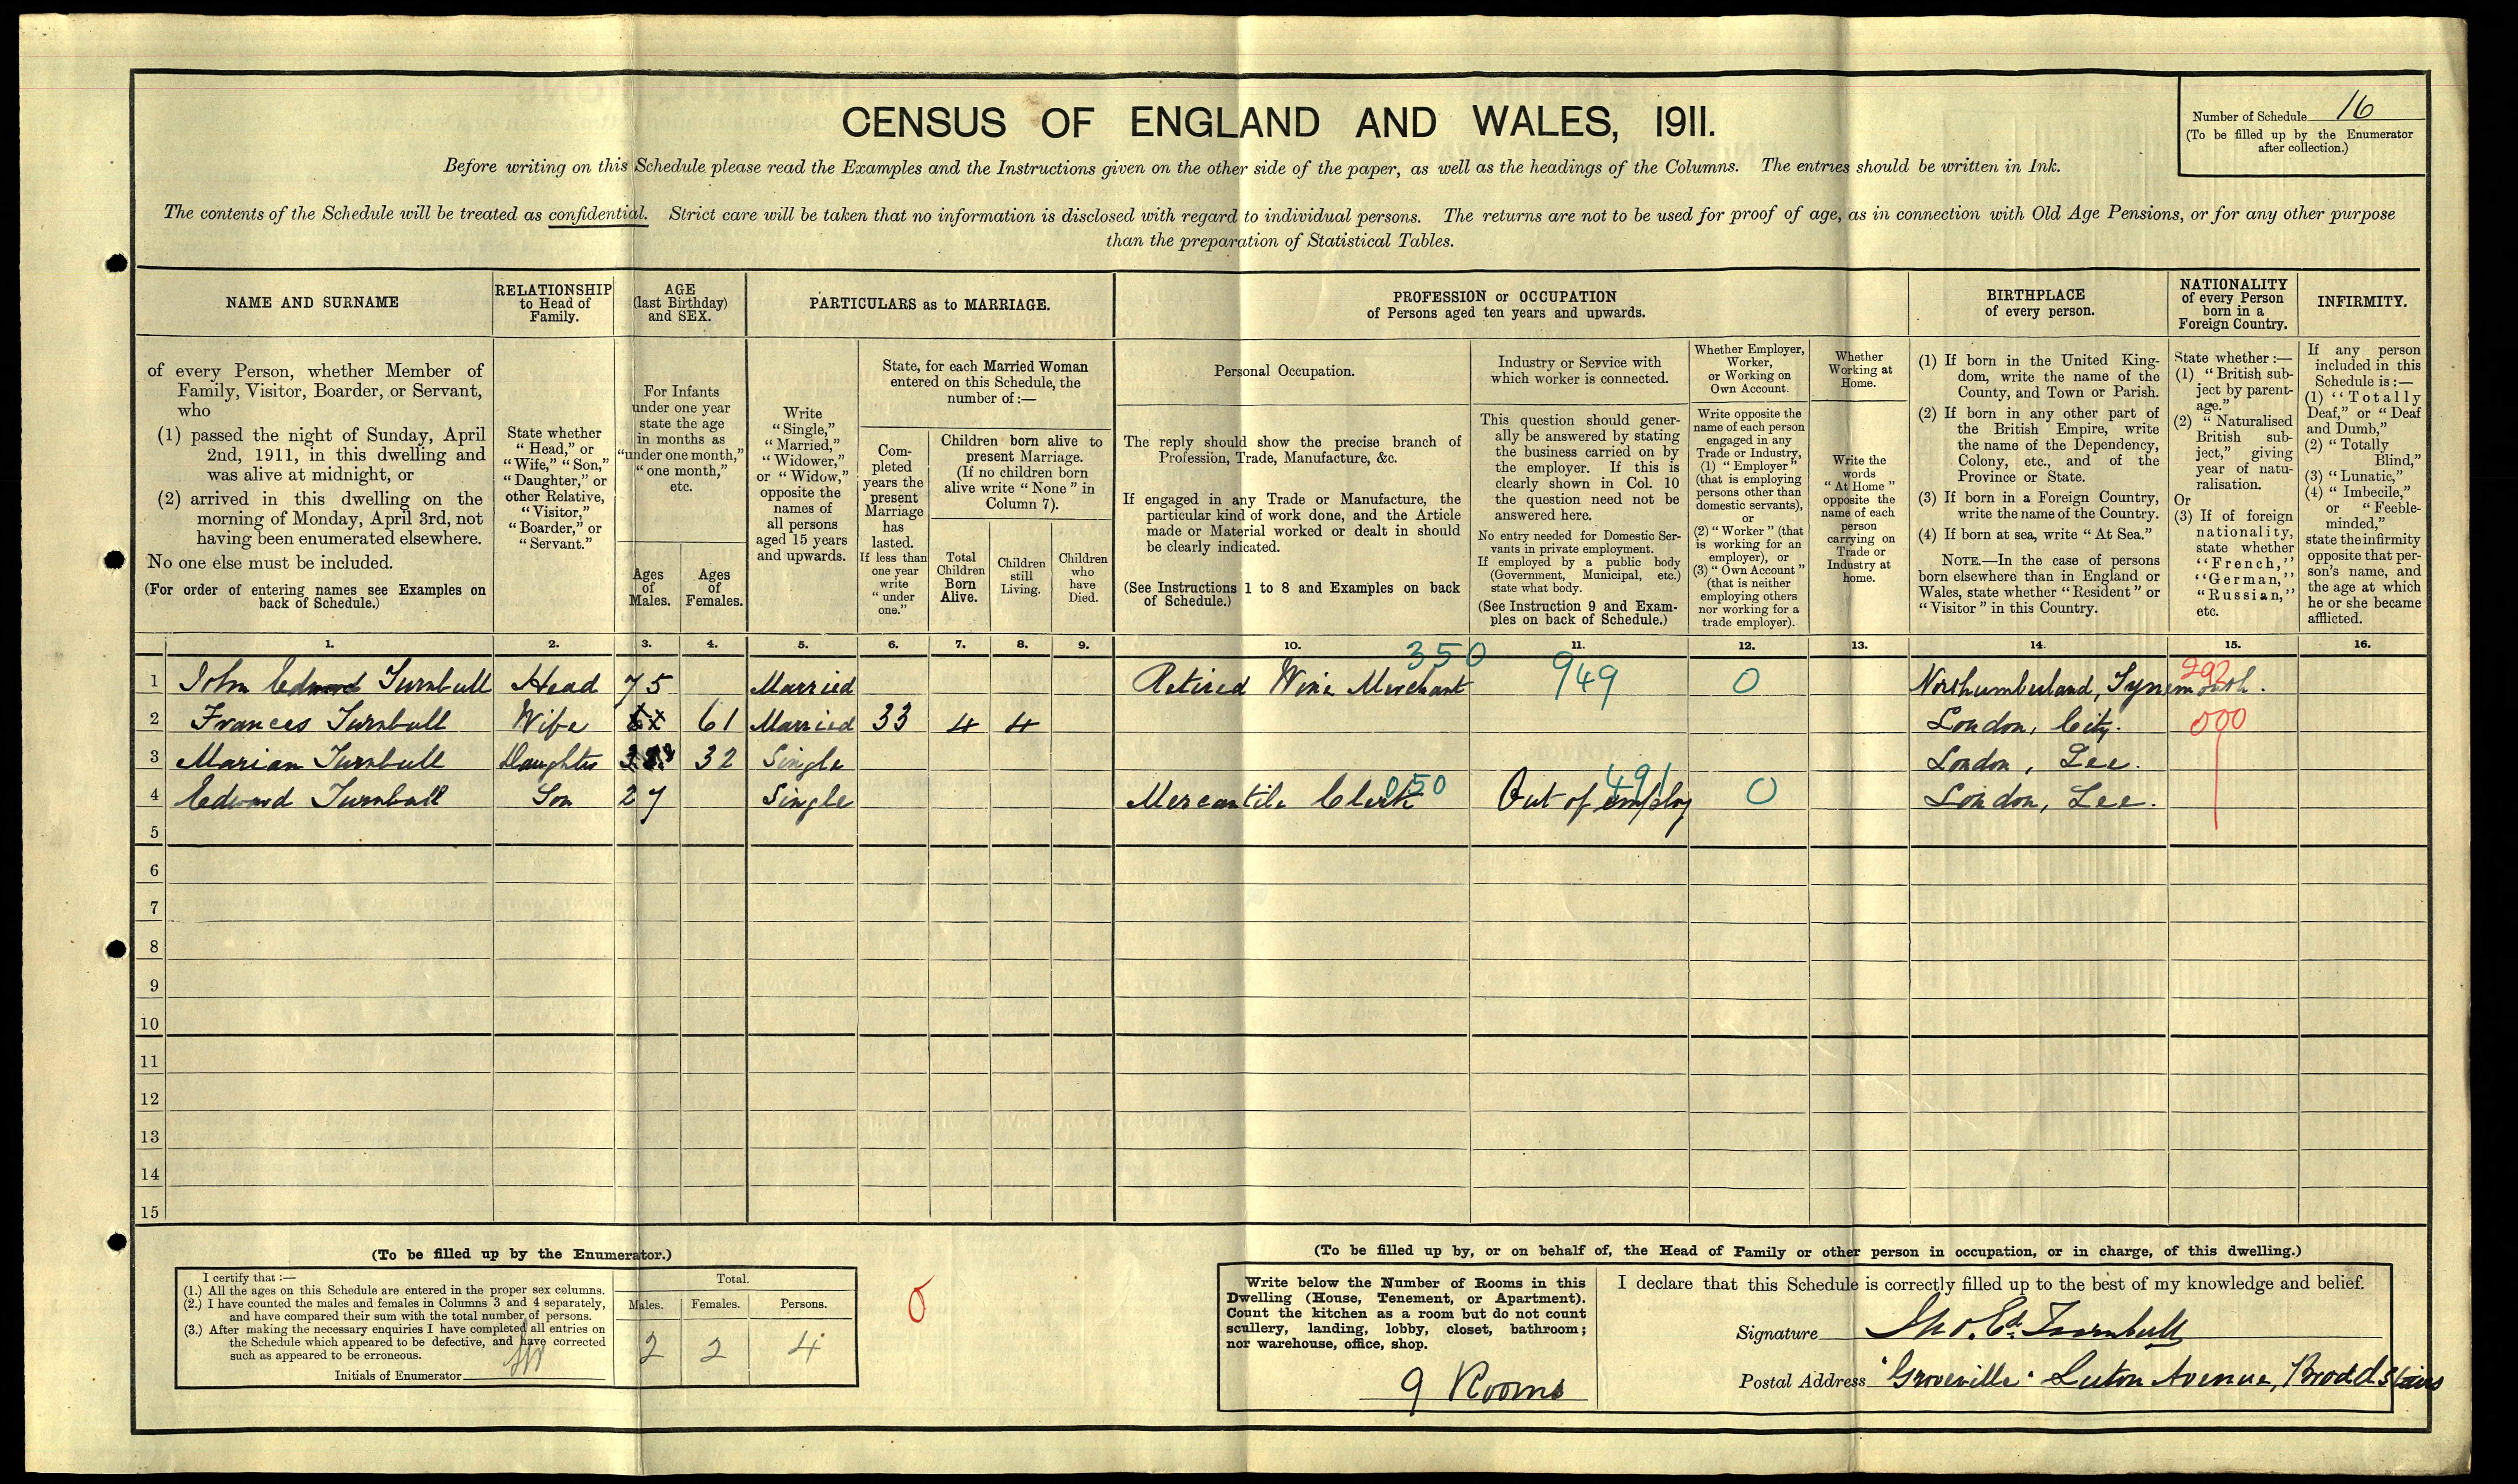 CENSUS OF ENGLAND AND WALES, 1911.
Number of Schedule 16
(To be filled up by the Enumerator
after collection.)
Before writing on this Schedule please read the Examples and the Instructions given on the other side of the paper, as well as the headings of the Columns. The entries should be written in Ink.
The contents of the Schedule will be treated as confidential. Strict care will be taken that no information is disclosed with regard to individual persons. The returns are not to be used for proof of age, as in connection with Old Age Pensions, or for any other purpose
than the preparation of Statistical Tables.
NAME AND SURNAME
of every Person, whether Member of
Family, Visitor, Boarder, or Servant,
who
(1) passed the night of Sunday, April
2nd, 1911, in this dwelling and
was alive at midnight, or
(2) arrived in this dwelling on the
morning of Monday, April 3rd, not
having been enumerated elsewhere.
No one else must be included.
(For order of entering names see Examples on
back of Schedule.)
RELATIONSHIP
to Head of
Family.
State whether
"Head," or
"Wife," "Son,"
"Daughter," or
other Relative,
"Visitor,"
"Boarder," or
"Servant."
AGE
(last Birthday)
and SEX.
For Infants
under one year
state the age
in months as
"under one month,"
"one month,"
etc.
Ages
of
Males.
Ages
of
Females.
PARTICULARS as to MARRIAGE.
Write
"Single,"
"Married,"
"Widower,"
or "Widow,"
opposite the
names of
all persons
aged 15 years
and upwards.
State, for each Married Woman
entered on this Schedule, the
number of :—
Com-
pleted
years the
present
Marriage
has
lasted.
If less than
one year
write
"under
one."
Children born alive to
present Marriage.
(If no children born
alive write "None" in
Column 7).
Total
Children
Born
Alive.
Children
still
Living.
Children
who
have
Died.
PROFESSION or OCCUPATION
of Persons aged ten years and upwards.
Personal Occupation.
The reply should show the precise branch of
Profession, Trade, Manufacture, &c.
If engaged in any Trade or Manufacture, the
particular kind of work done, and the Article
made or Material worked or dealt in should
be clearly indicated.
(See Instructions 1 to 8 and Examples on back
of Schedule.)
Industry or Service with
which worker is connected.
This question should gener-
ally be answered by stating
the business carried on by
the employer. If this is
clearly shown in Col. 10
the question need not be
answered here.
No entry needed for Domestic Ser-
vants in private employment.
If employed by a public body
(Government, Municipal, etc.)
state what body.
(See Instruction 9 and Exam-
ples on back of Schedule.)
Whether Employer,
Worker,
or Working on
Own Account.
Write opposite the
name of each person
engaged in any
Trade or Industry,
(1) "Employer"
(that is employing
persons other than
domestic servants),
or
(2) "Worker" (that
is working for an
employer), or
(3) "Own Account"
(that is neither
employing others
nor working for a
trade employer).
Whether
Working at
Home.
Write the
words
"At Home"
opposite the
name of each
person
carrying on
Trade or
Industry at
home.
BIRTHPLACE
of every person.
(1) If born in the United King-
dom, write the name of the
County, and Town or Parish.
(2) If born in any other part of
the British Empire, write
the name of the Dependency,
Colony, etc., and of the
Province or State.
(3) If born in a Foreign Country,
write the name of the Country.
(4) If born at sea, write "At Sea."
NOTE.—In the case of persons
born elsewhere than in England or
Wales, state whether "Resident" or
"Visitor" in this Country.
NATIONALITY
of every Person
born in a
Foreign Country.
State whether :—
(1) "British sub-
ject by parent-
age."
(2) "Naturalised
British sub-
ject," giving
year of natu-
ralisation.
Or
(3) If of foreign
nationality,
state whether
"French,"
"German,"
"Russian,"
etc.
INFIRMITY.
If any person
included in this
Schedule is :—
(1) "Totally
Deaf," or "Deaf
and Dumb,"
(2) "Totally
Blind,"
(3) "Lunatic,"
(4) "Imbecile,"
or "Feeble-
minded,"
state the infirmity
opposite that per-
son's name, and
the age at which
he or she became
afflicted.
1. 2. 3. 4. 5. 6. 7. 8. 9. 10. 11. 12. 13. 14. 15. 16.
350 292
1 John Edward Turnbull Head 75 Married Retired Wine Merchant 949 0 Northumberland, Tynemouth.
2 Frances Turnbull Wife 61 Married 33 4 4 London, City. 000
3 Marian Turnbull Daughter 32 Single London, Lee.
4 Edward Turnbull Son 27 Single Mercantile Clerk 050 Out of employ 491 0 London, Lee.
5
6
7
8
9
10
11
12
13
14
15
(To be filled up by the Enumerator.)
I certify that :—
(1.) All the ages on this Schedule are entered in the proper sex columns.
(2.) I have counted the males and females in Columns 3 and 4 separately,
and have compared their sum with the total number of persons.
(3.) After making the necessary enquiries I have completed all entries on
the Schedule which appeared to be defective, and have corrected
such as appeared to be erroneous.
Initials of Enumerator
Total.
Males. Females. Persons.
2 2 4
0
(To be filled up by, or on behalf of, the Head of Family or other person in occupation, or in charge, of this dwelling.)
Write below the Number of Rooms in this
Dwelling (House, Tenement, or Apartment).
Count the kitchen as a room but do not count
scullery, landing, lobby, closet, bathroom;
nor warehouse, office, shop.
9 Rooms
I declare that this Schedule is correctly filled up to the best of my knowledge and belief.
Signature Jno. Ed. Turnbull
Postal Address "Groveville" Luton Avenue, Broadstairs